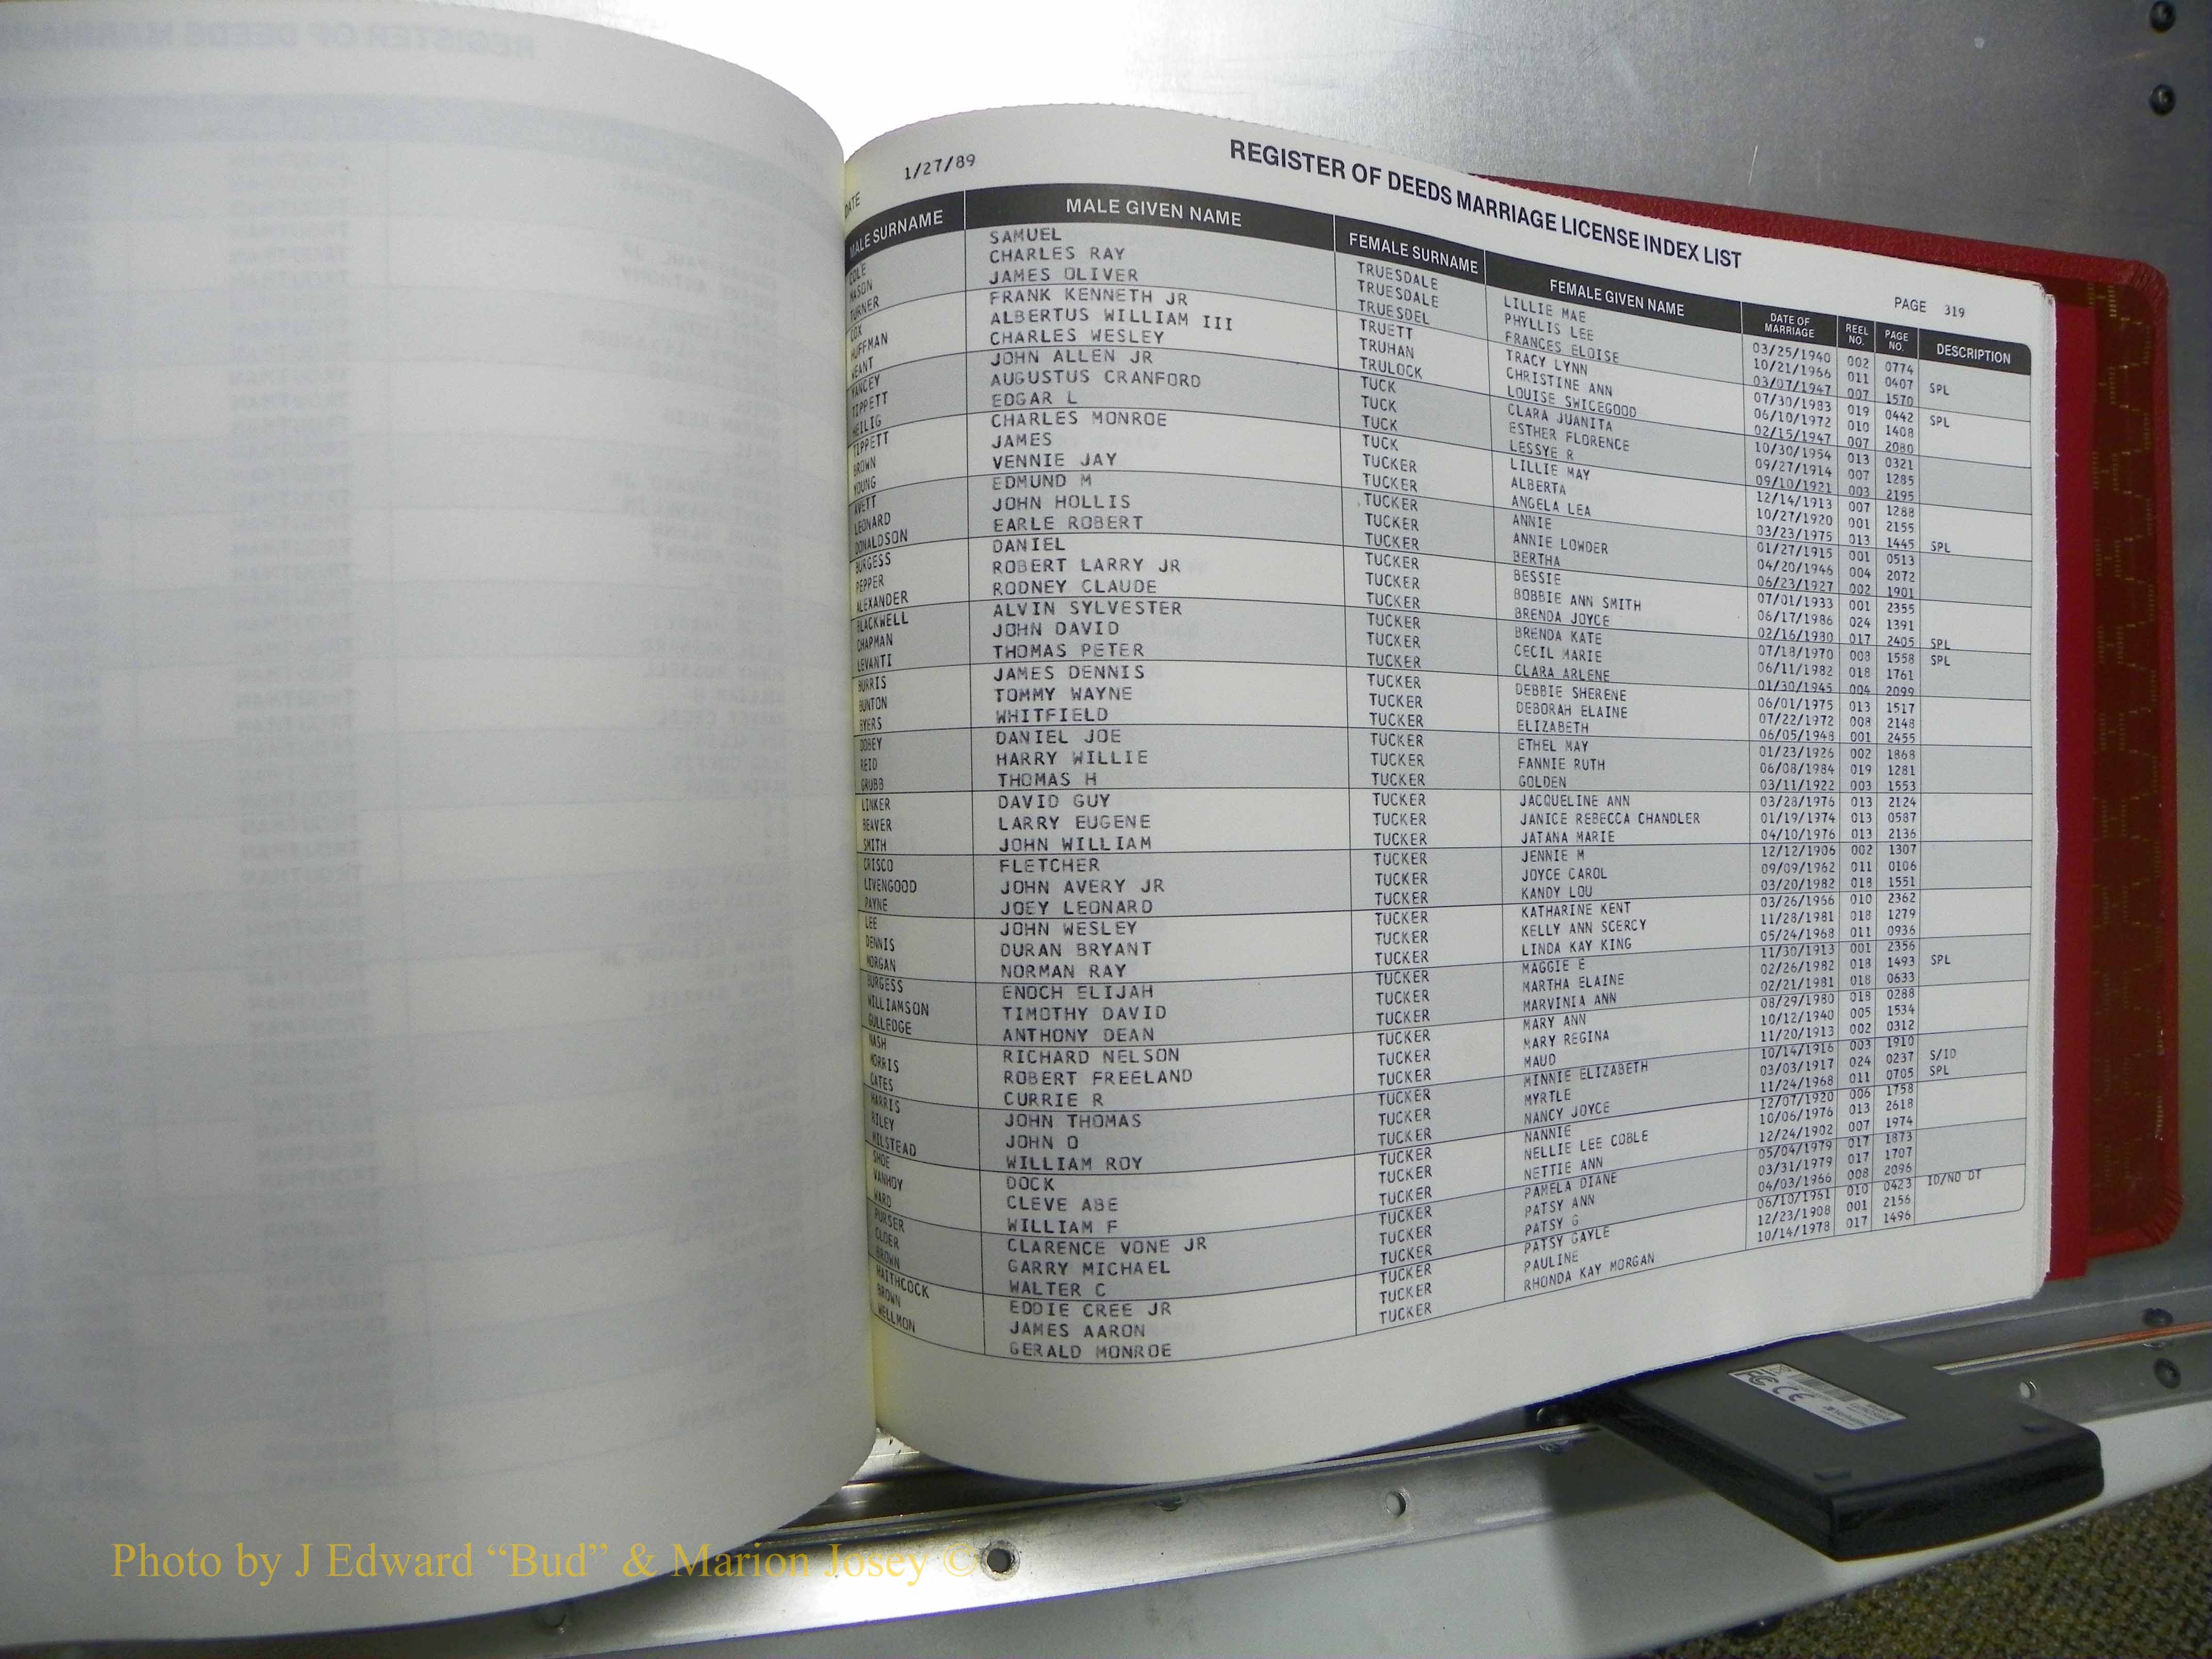 DATE 1/27/89
REGISTER OF DEEDS MARRIAGE LICENSE INDEX LIST
PAGE 319
MALE SURNAME MALE GIVEN NAME FEMALE SURNAME FEMALE GIVEN NAME DATE OF MARRIAGE REEL NO. PAGE NO. DESCRIPTION
COLE SAMUEL TRUESDALE LILLIE MAE 03/25/1940 002 0774
MASON CHARLES RAY TRUESDALE PHYLLIS LEE 10/21/1966 011 0407 SPL
TURNER JAMES OLIVER TRUESDEL FRANCES ELOISE 03/07/1947 007 1570
COX FRANK KENNETH JR TRUETT TRACY LYNN 07/30/1983 019 0442 SPL
HUFFMAN ALBERTUS WILLIAM III TRUHAN CHRISTINE ANN 06/10/1972 010 1408
WEANT CHARLES WESLEY TRULOCK LOUISE SWICEGOOD 02/15/1947 007 2080
YANCEY JOHN ALLEN JR TUCK CLARA JUANITA 10/30/1954 013 0321
TIPPETT AUGUSTUS CRANFORD TUCK ESTHER FLORENCE 09/27/1914 007 1285
HEILIG EDGAR L TUCK LESSYE R 09/10/1921 003 2195
TIPPETT CHARLES MONROE TUCK LILLIE MAY 12/14/1913 007 1288
BROWN JAMES TUCKER ALBERTA 10/27/1920 001 2155
YOUNG VENNIE JAY TUCKER ANGELA LEA 03/23/1975 013 1445 SPL
AVETT EDMUND M TUCKER ANNIE 01/27/1915 001 0513
LEONARD JOHN HOLLIS TUCKER ANNIE LOWDER 04/20/1946 004 2072
DONALDSON EARLE ROBERT TUCKER BERTHA 06/23/1927 002 1901
BURGESS DANIEL TUCKER BESSIE 07/01/1933 001 2355
PEPPER ROBERT LARRY JR TUCKER BOBBIE ANN SMITH 06/17/1986 024 1391
ALEXANDER RODNEY CLAUDE TUCKER BRENDA JOYCE 02/16/1980 017 2405 SPL
BLACKWELL ALVIN SYLVESTER TUCKER BRENDA KATE 07/18/1970 008 1558 SPL
CHAPMAN JOHN DAVID TUCKER CECIL MARIE 06/11/1982 018 1761
LEVANTI THOMAS PETER TUCKER CLARA ARLENE 01/30/1945 004 2099
BURRIS JAMES DENNIS TUCKER DEBBIE SHERENE 06/01/1975 013 1517
BUNTON TOMMY WAYNE TUCKER DEBORAH ELAINE 07/22/1972 008 2148
BYERS WHITFIELD TUCKER ELIZABETH 06/05/1948 001 2455
DOBEY DANIEL JOE TUCKER ETHEL MAY 01/23/1926 002 1868
REID HARRY WILLIE TUCKER FANNIE RUTH 06/08/1984 019 1281
GRUBB THOMAS H TUCKER GOLDEN 03/11/1922 003 1553
LINKER DAVID GUY TUCKER JACQUELINE ANN 03/28/1976 013 2124
BEAVER LARRY EUGENE TUCKER JANICE REBECCA CHANDLER 01/19/1974 013 0587
SMITH JOHN WILLIAM TUCKER JATANA MARIE 04/10/1976 013 2136
CRISCO FLETCHER TUCKER JENNIE M 12/12/1906 002 1307
LIVENGOOD JOHN AVERY JR TUCKER JOYCE CAROL 09/09/1962 011 0106
PAYNE JOEY LEONARD TUCKER KANDY LOU 03/20/1982 018 1551
LEE JOHN WESLEY TUCKER KATHARINE KENT 03/26/1966 010 2362
DENNIS DURAN BRYANT TUCKER KELLY ANN SCERCY 11/28/1981 018 1279
MORGAN NORMAN RAY TUCKER LINDA KAY KING 05/24/1968 011 0936
BURGESS ENOCH ELIJAH TUCKER MAGGIE E 11/30/1913 001 2356
WILLIAMSON TIMOTHY DAVID TUCKER MARTHA ELAINE 02/26/1982 018 1493 SPL
GULLEDGE ANTHONY DEAN TUCKER MARVINIA ANN 02/21/1981 018 0633
NASH RICHARD NELSON TUCKER MARY ANN 08/29/1980 018 0288
MORRIS ROBERT FREELAND TUCKER MARY REGINA 10/12/1940 005 1534
CATES CURRIE R TUCKER MAUD 11/20/1913 002 0312
HARRIS JOHN THOMAS TUCKER MINNIE ELIZABETH 10/14/1916 003 1910
RILEY JOHN O TUCKER MYRTLE 03/03/1917 024 0237 S/ID
MILSTEAD WILLIAM ROY TUCKER NANCY JOYCE 11/24/1968 011 0705 SPL
SHOE DOCK TUCKER NANNIE 12/07/1920 006 1758
VANHOY CLEVE ABE TUCKER NELLIE LEE COBLE 10/06/1976 013 2618
WARD WILLIAM F TUCKER NETTIE ANN 12/24/1902 007 1974
PURSER CLARENCE VONE JR TUCKER PAMELA DIANE 05/04/1979 017 1873
GARRY MICHAEL TUCKER PATSY ANN 03/31/1979 017 1707
BROWN WALTER C TUCKER PATSY G 04/03/1966 008 2096
HAITHCOCK EDDIE CREE JR TUCKER PATSY GAYLE 06/10/1961 010 0423 ID/NO DT
BROWN JAMES AARON TUCKER PAULINE 12/23/1908 001 2156
WELLMON GERALD MONROE TUCKER RHONDA KAY MORGAN 10/14/1978 017 1496
Photo by J Edward “Bud” & Marion Josey ©